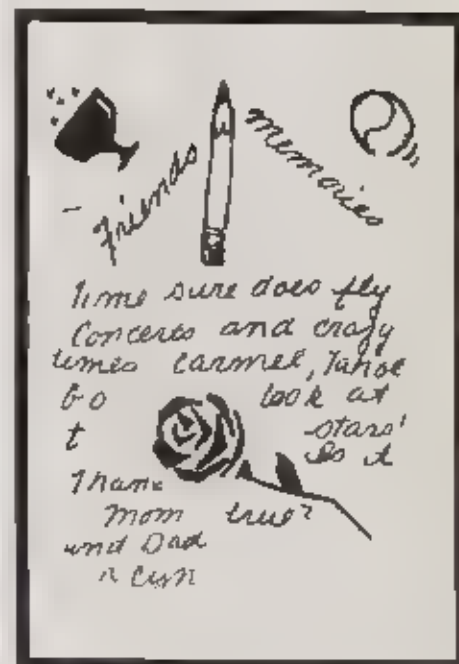 Friends
memories
Time sure does fly
Concerts and crazy
times Carmel, Tahoe
look at
stars!
Is it
Mom true?
and Dad